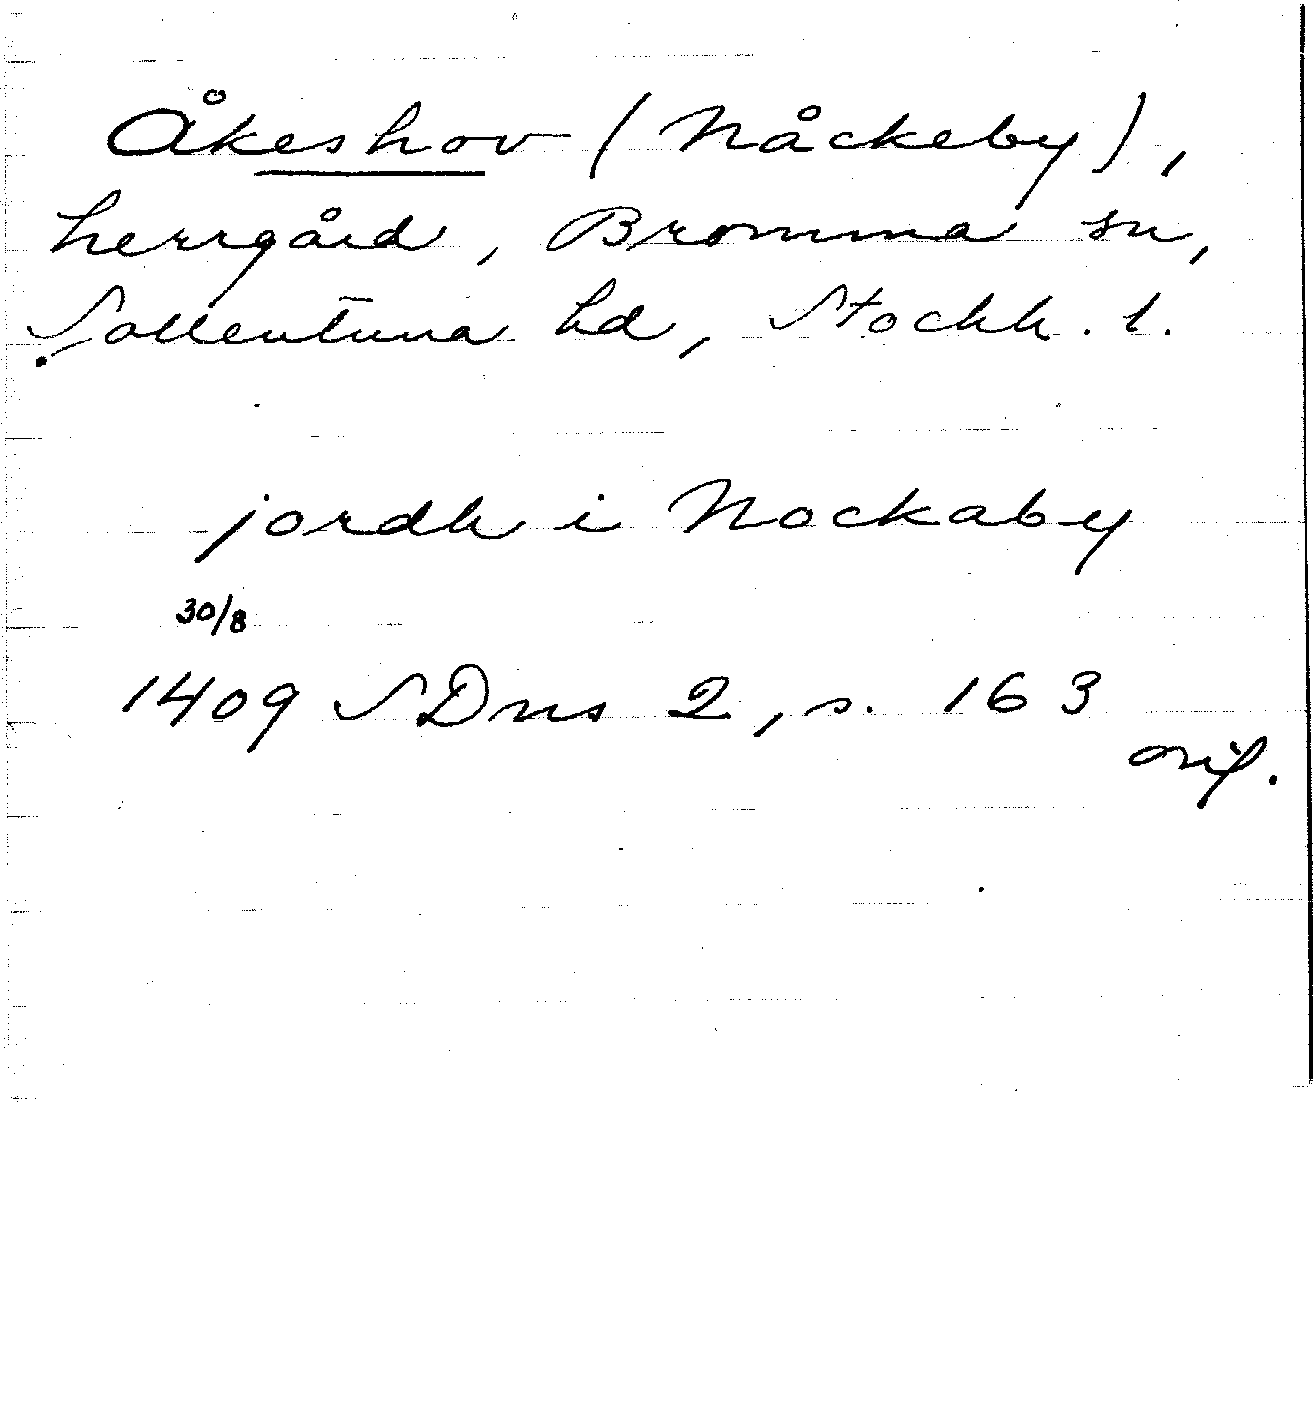 Åkeshov (Nåckeby),
herrgård, Bromma sn,
Sollentuna hd, Stockh. l.
jordh i Nockaby
30/8
1409 SDns 2, s. 163
orig.